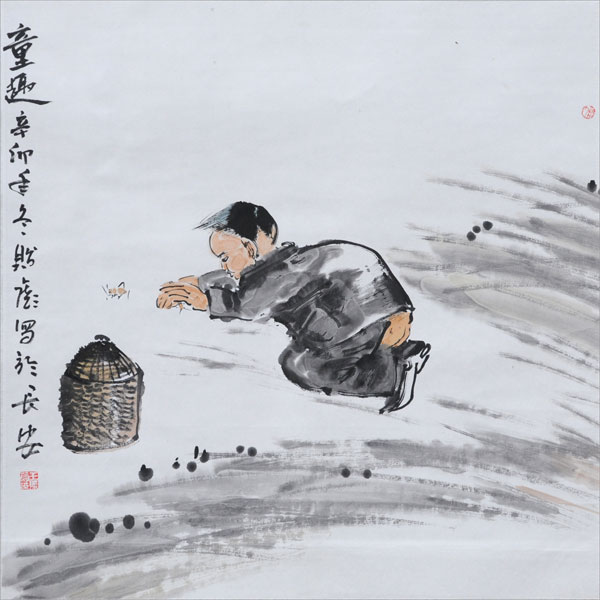 童趣 辛卯年冬 彪写于长安